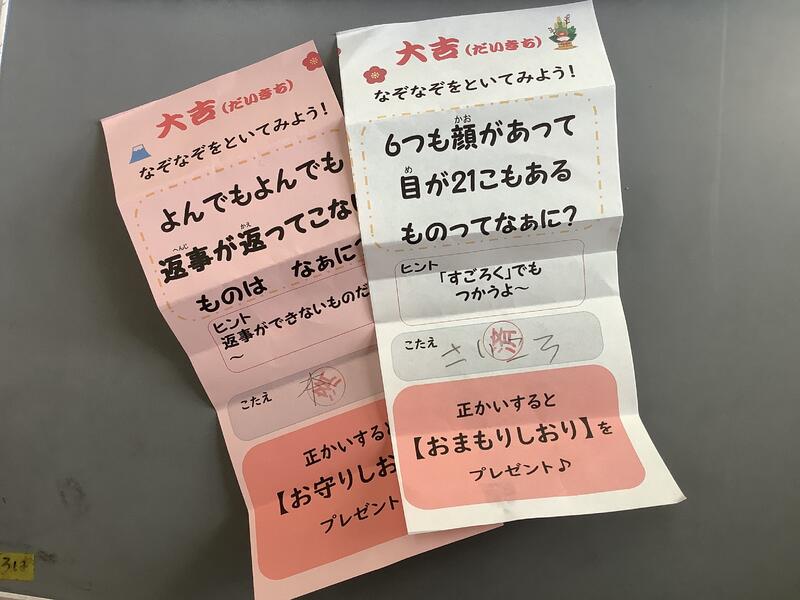 大吉(だいきち)
なぞなぞをといてみよう!
よんでもよんでも
返事が返ってこない
へんじ かえ
ものは なぁに?
ヒント
返事ができないものだ
〜
こたえ
本
正かいすると
【お守りしお
プレゼント
大吉(だいきち)
なぞなぞをといてみよう!
6つも顔があって
かお
目が21こもある
め
ものってなぁに?
ヒント
「すごろく」でも
つかうよ〜
こたえ
さいころ
済
正かいすると
【おまもりしおり】を
プレゼント♪